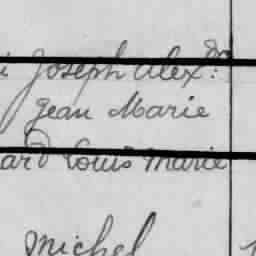 i Joseph Alex.dre
Jean Marie
ard Louis Marie
Michel